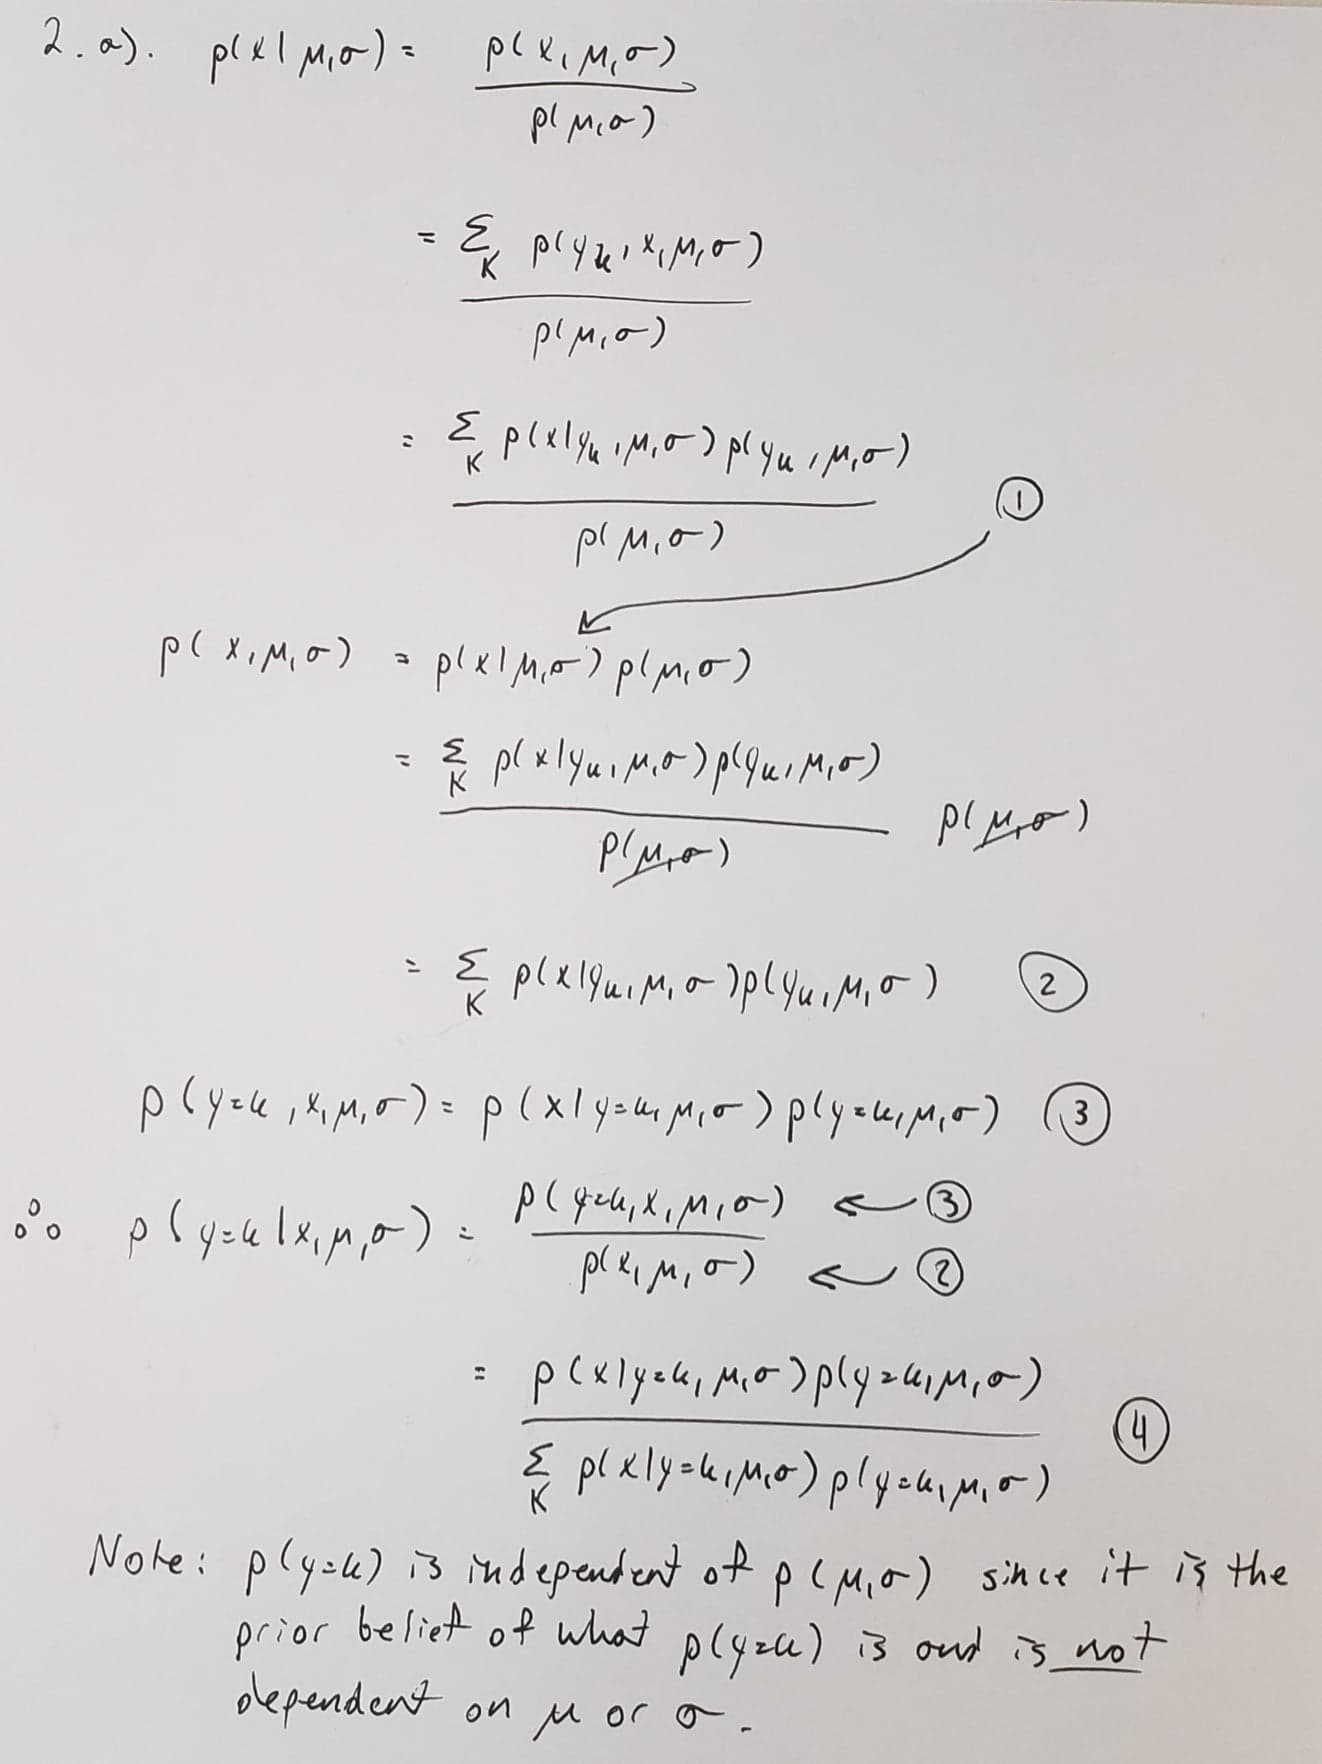 2. a). p(x|μ,σ) = p(x,μ,σ)
p(μ,σ)
= Σ p(yk, x,μ,σ)
K
p(μ,σ)
= Σ p(x|yk,μ,σ)p(yk,μ,σ)
K
p(μ,σ)
①
p(x,μ,σ) = p(x|μ,σ)p(μ,σ)
= Σ p(x|yk,μ,σ)p(yk,μ,σ)
K
p(μ,σ) p(μ,σ)
= Σ p(x|yk,μ,σ)p(yk,μ,σ) ②
K
p(y=k,x,μ,σ) = p(x|y=k,μ,σ)p(y=k,μ,σ) ③
∴ p(y=k|x,μ,σ) = p(y=k,x,μ,σ) ← ③
p(x,μ,σ) ← ②
= p(x|y=k,μ,σ)p(y=k,μ,σ)
④
Σ p(x|y=k,μ,σ)p(y=k,μ,σ)
K
Note: p(y=k) is independent of p(μ,σ) since it is the
prior belief of what p(y=k) is and is not
dependent on μ or σ.